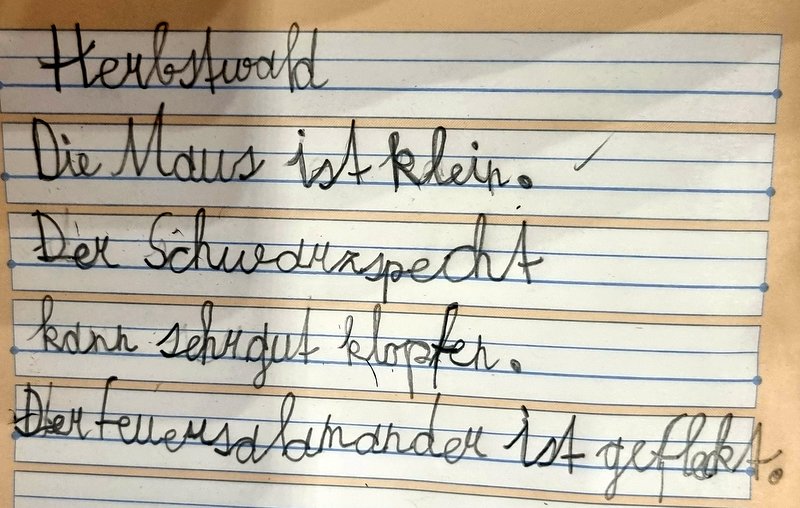 Herbstwald
Die Maus ist klein.
Der Schwarzspecht
kann sehr gut klopfen.
Der feuersalamander ist gefleckt.